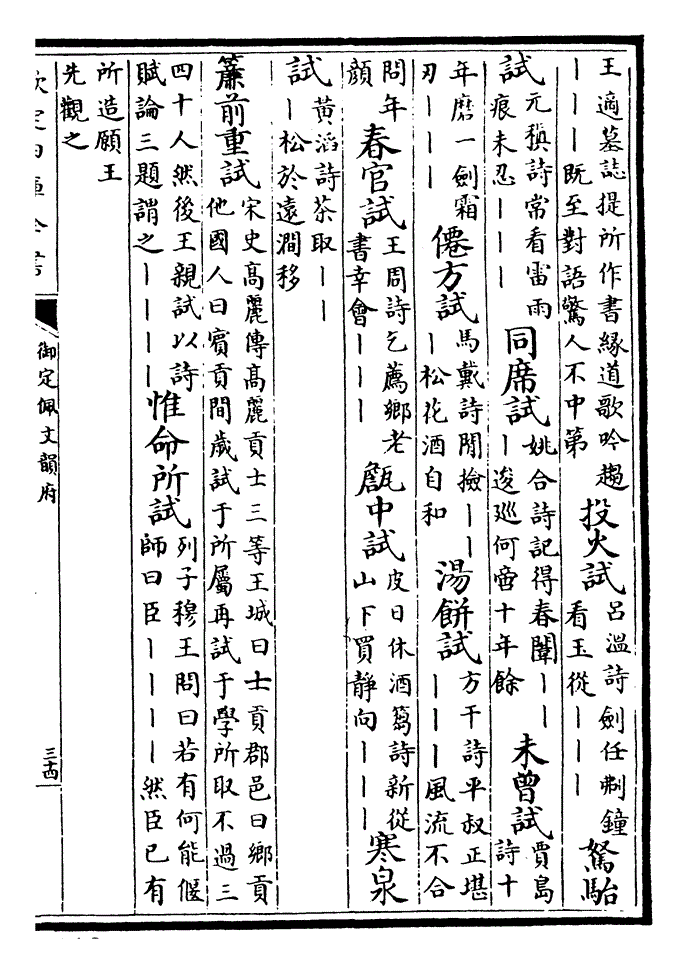 王適墓誌提所作書緣道歌吟趨
———既至對語驚人不中第
投火試
呂溫詩劍任刜鐘
看玉從———
駑駘
試
元稹詩常看雷雨
痕未忍———
同席試
姚合詩記得春闈——
—逡巡何啻十年餘
未曾試
賈島
詩十
年磨一劍霜
刃———
僊方試
馬戴詩閒撿——
—松花酒自和
湯餅試
方干詩平叔正堪
———風流不合
問年
顏
春官試
王周詩乞薦鄉老
書幸會———
甑中試
皮日休酒篘詩新從
山下買靜向———
寒泉
試
黃滔詩茶取——
—松於遠澗移
簾前重試
宋史高麗傳高麗貢士三等王城曰士貢郡邑曰鄉貢
他國人曰賓貢間歲試于所屬再試于學所取不過三
四十人然後王親試以詩
賦論三題謂之————
惟命所試
列子穆王問曰若有何能偃
師曰臣————然臣已有
所造願王
先觀之
欽定四庫全書
御定佩文韻府
三十四